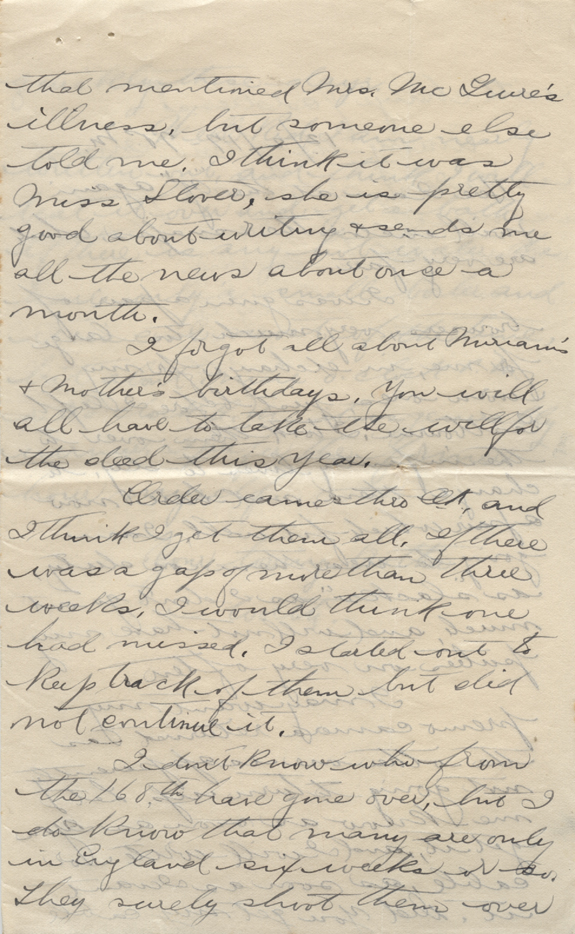 that mentioned Mrs. Mc Guire's
illness, but someone else
told me. I think it was
Miss Slover, she is pretty
good about writing & sends me
all the news about once a
month.
I forgot all about Miriam's
& Mother's birthdays. You will
all have to take the will for
the deed this year.
Order comes thro O.K., and
I think I get them all. If there
was a gap of more than three
weeks, I would think one
had missed. I started out to
keep track of them but did
not continue it.
I don't know who from
the 168th have gone over, but I
do know that many are only
in England six weeks or so.
They surely shoot them over